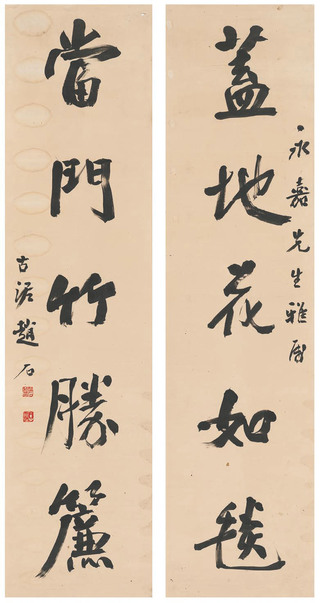 永嘉先生雅屬
蓋地花如毯
當門竹勝簾
古泥趙石